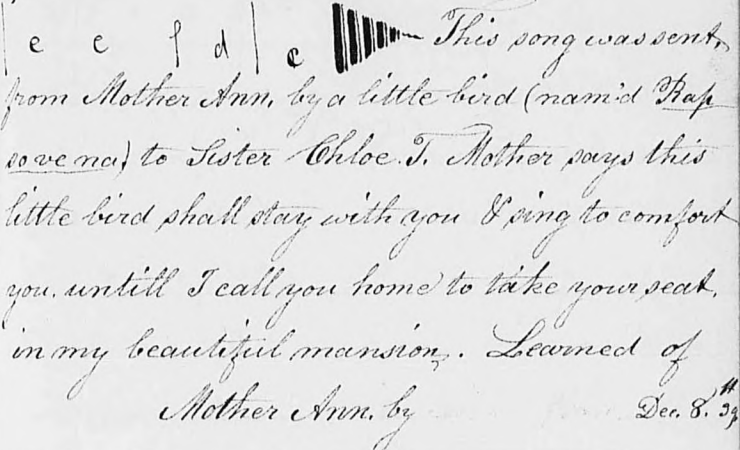 e e f d c This song was sent,
from Mother Ann, by a little bird (nam'd Rap
sovena) to Sister Chloe. T. Mother says this
little bird shall stay with you & sing to comfort
you. untill I call you home to take your seat,
in my beautiful mansion,. Learned of
Mother Ann. by Dec. 8.th 39